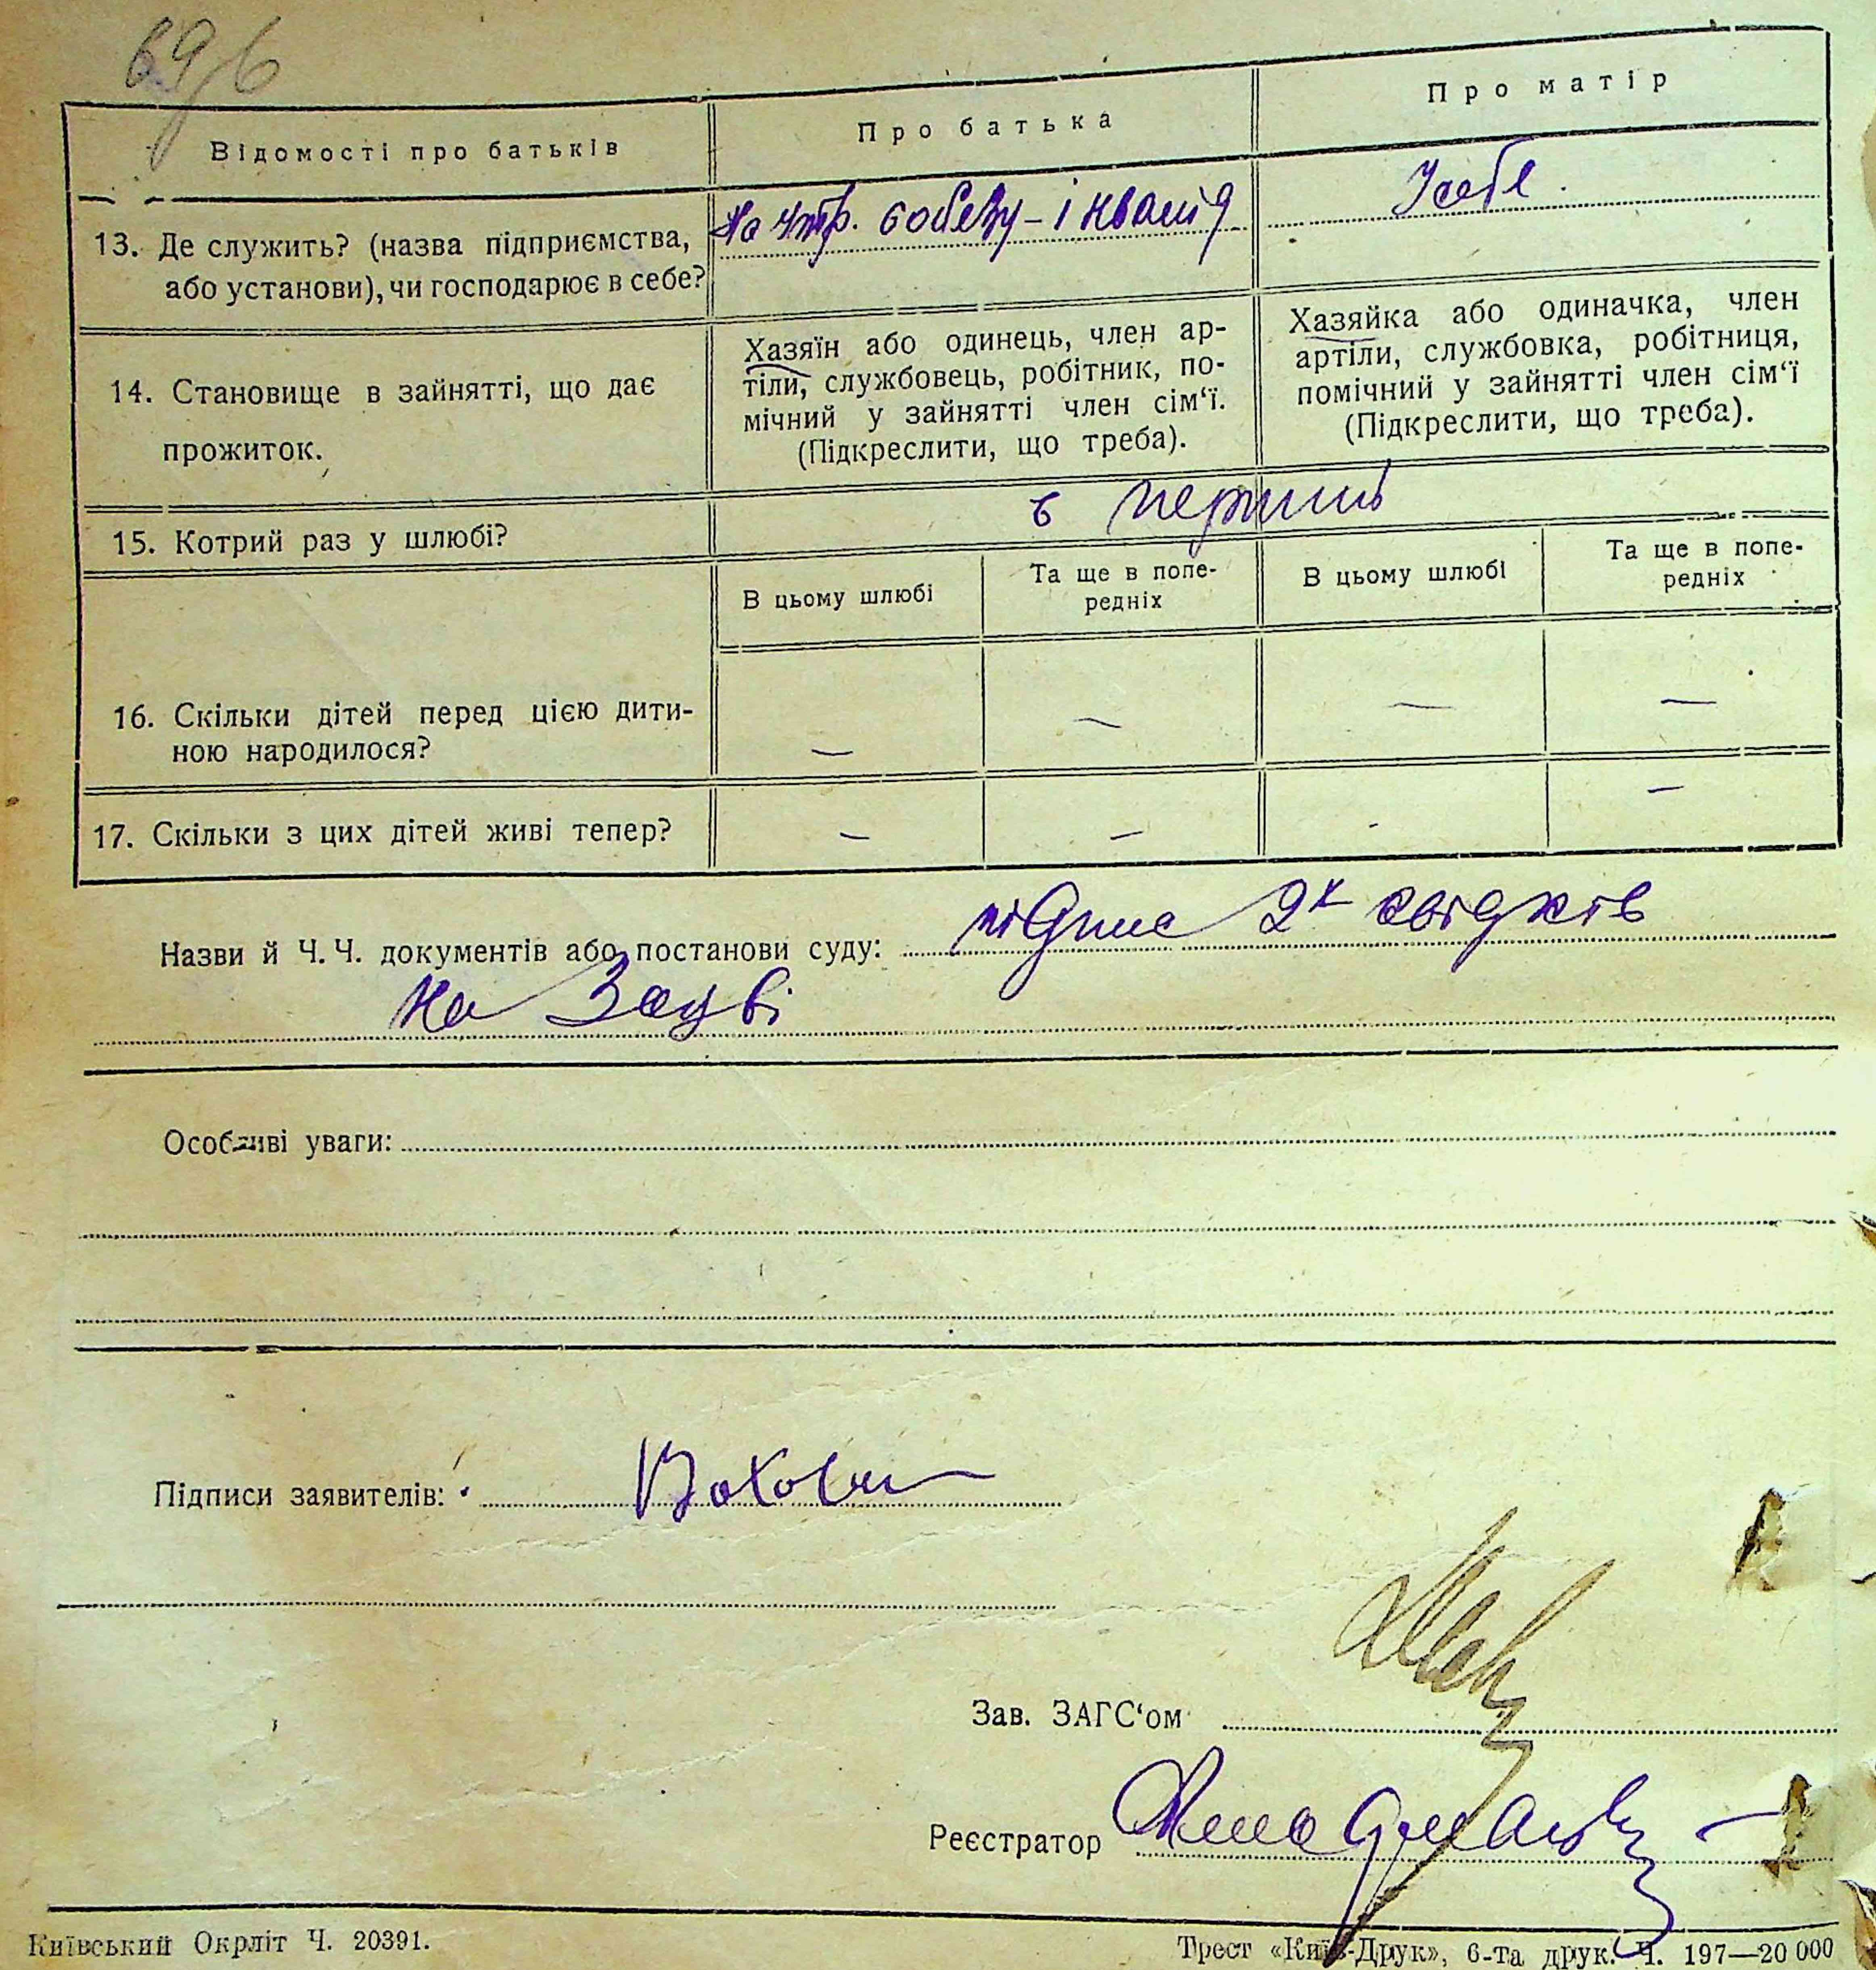 69/6
Відомості про батьків
Про батька
Про матір
13. Де служить? (назва підприємства,
або установи), чи господарює в себе?
На утр. собезу - інвалід
У себе.
14. Становище в зайнятті, що дає
прожиток.
Хазяїн або одинець, член ар-
тіли, службовець, робітник, по-
мічний у зайнятті член сім'ї.
(Підкреслити, що треба).
Хазяйка або одиначка, член
артіли, службовка, робітниця,
помічний у зайнятті член сім'ї
(Підкреслити, що треба).
15. Котрий раз у шлюбі?
в перший
В цьому шлюбі
Та ще в попе-
редніх
В цьому шлюбі
Та ще в попе-
редніх
16. Скільки дітей перед цією дити-
ною народилося?
— — — —
17. Скільки з цих дітей живі тепер?
— — - —
Назви й Ч. Ч. документів або постанови суду: підпис 2х свідків
на Заяві
Особливі уваги:
Підписи заявителів:
Зав. ЗАГС'ом
Реєстратор
Київський Окрліт Ч. 20391.
Трест «Київ-Друк», 6-та друк. Ч. 197—20 000